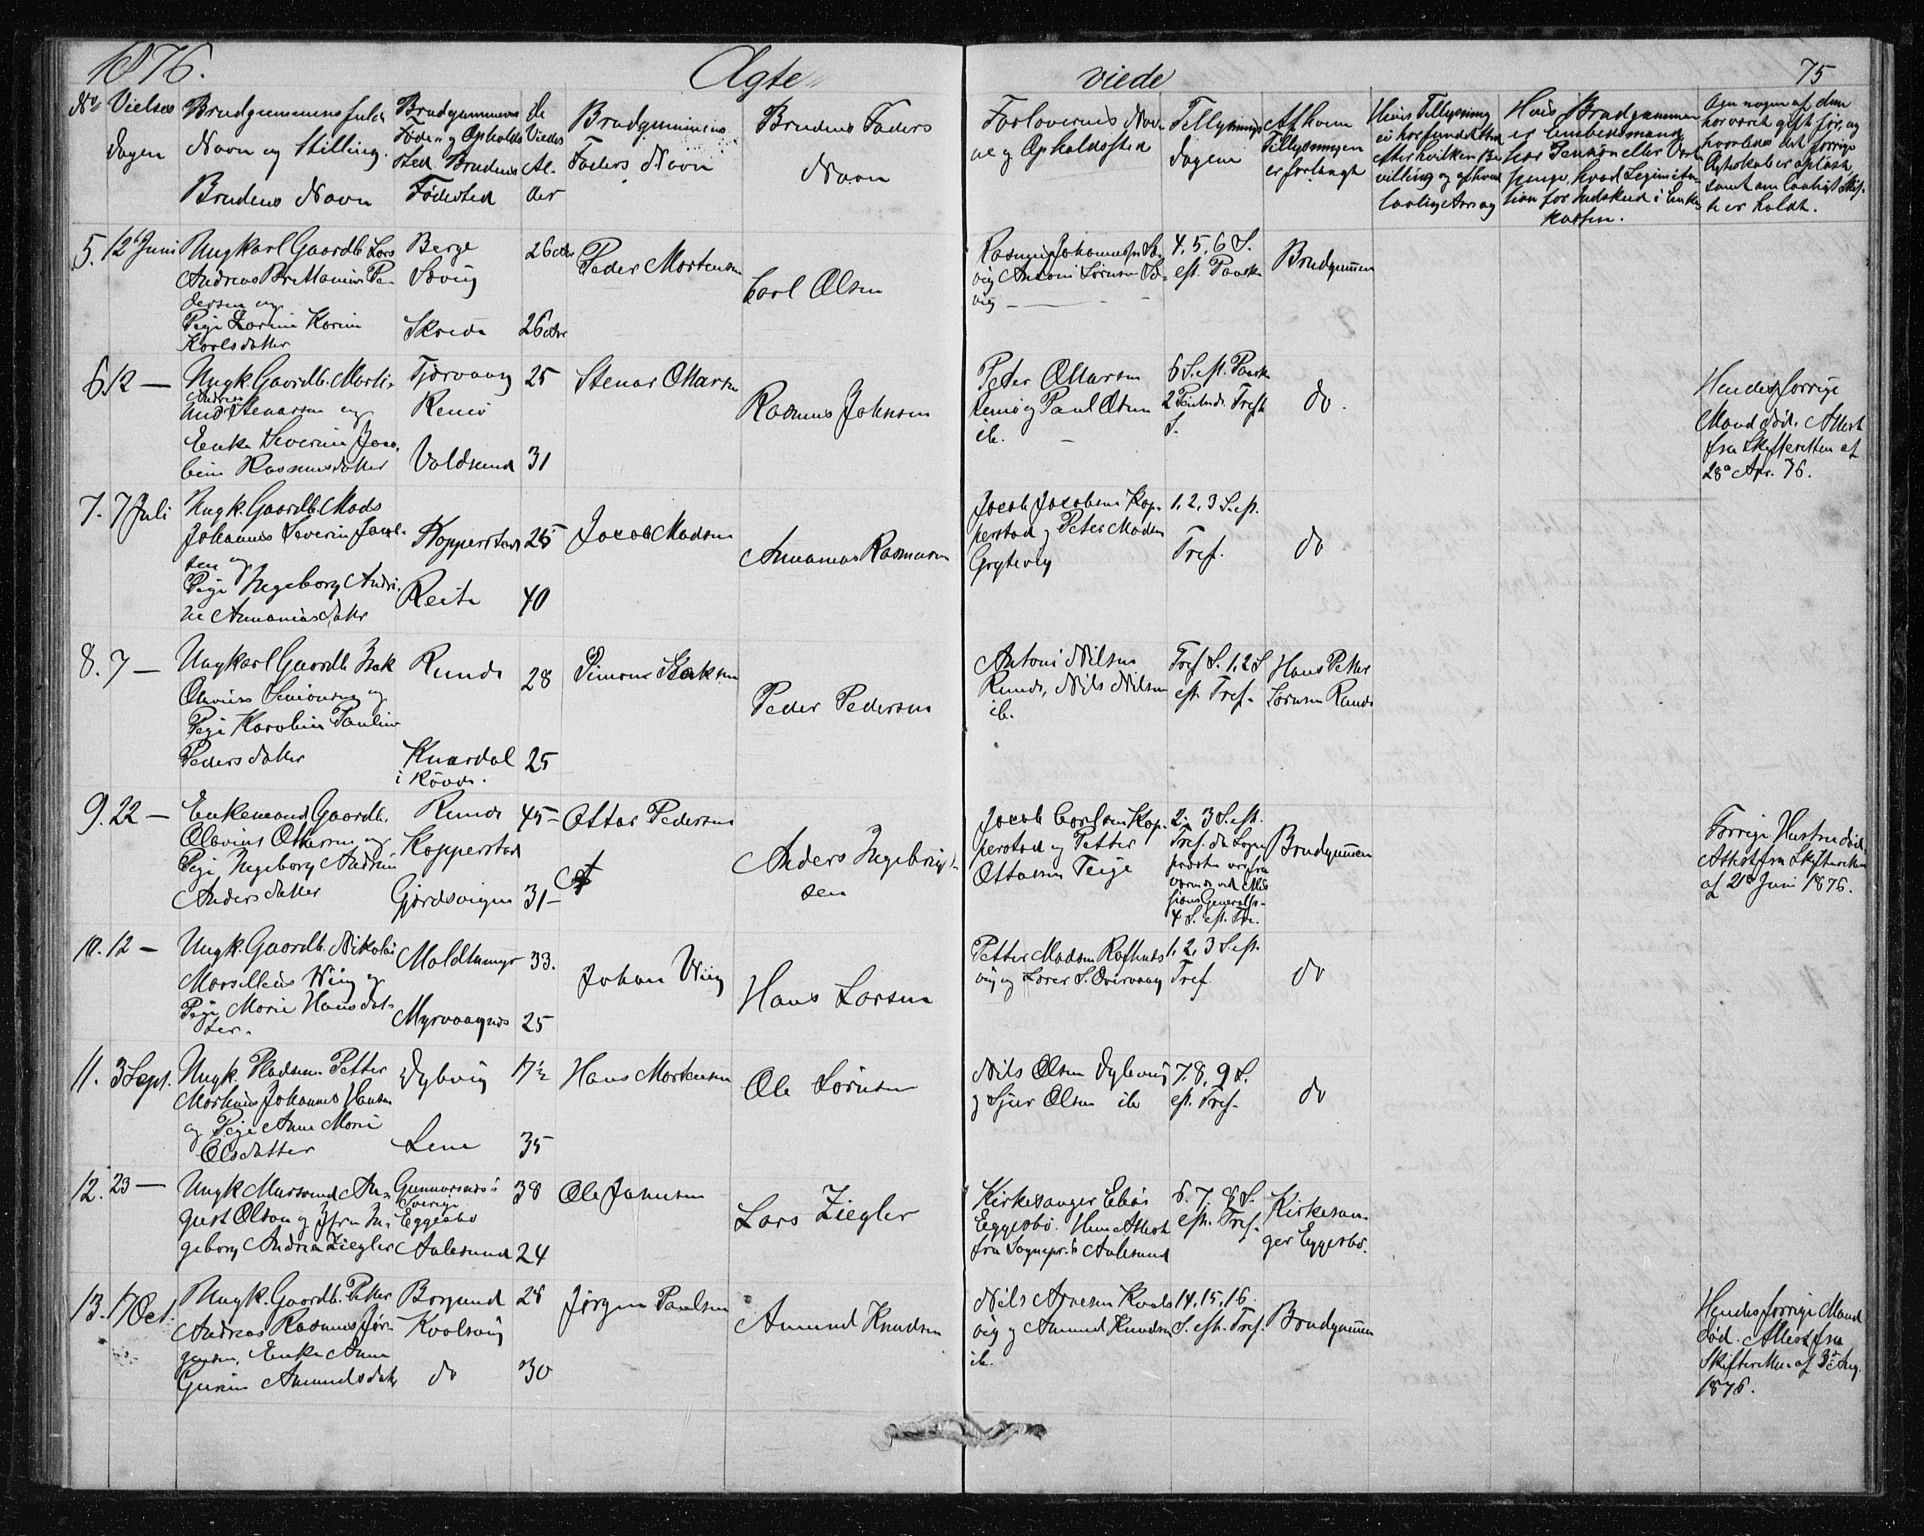 1876.
Ægte
viede
75
No
Vielses
dagen
Brudgummens fulde
Navn og Stilling.
Brudens Navn
Brudgummens
Føde- og Opholds
sted Brudens
Fødested
De
Viedes
Al-
der
Brudgummens
Faders Navn
Brudens Faders
Navn
Forlovernes Nav-
ne og Opholdssted
Tillysnings
dagene
Af hvem
Tillysningen
er forlangt
Hvis Tillysning
ei har fundet Sted
efter hvilken Be-
villing og af hvad
lovlig Aarsag
Hvis Brudgummen
er Embedsmand
har Pension eller Vart
penge, hvad Legimita-
tion for Indskud i Enke-
kassen.
Om nogen af dem
har været gift før, og
hvorledes det forrige
Ægteskab er opløst
samt om lovligt Skif-
te er holdt.
5. 12 Juni
Ungkarl Gaardb. Lars
Andreas Brittanius Pe-
dersen og
Pige Karine
Karlsdatter
Berge
Søvig
Skrede
26
26
Peder Mortensen
Carl Olsen
Rasmus Johannessen Sø-
vig Antoni Sørensen Sø-
vig
4, 5, 6 S.
eft. Paaske
Brudgummen
6. 12 —
Ungk. Gaardb. Marti-
nus Andreas Stenarsen og
Enke Severine Jaco-
bine Rasmusdatter
Tjørvaag
Remø
Voldsund
25
31
Stenar Ottarsen
Rasmus Johnsen
Peter Ottarsen
Remø og Paul Olsen
ib.
6 S. eft. Paaske
2 Pintsed. Tref.
S.
do.
Hendes forrige
Mand død. Attest
fra Skifteretten af
28de Apr. 76.
7. 7 Juli
Ungk. Gaardb. Mads
Johannes Severin Jacob-
sen og
Pige Ingeborg Andri-
ne Annaniasdatter
Kopperstad
Reite
25
40
Jacob Madsen
Annanias Rasmusen
Jacob Jacobsen Kop-
perstad og Peter Madsen
Grytevig
1, 2, 3 S. eft.
Tref.
do
8. 7 —
Ungkarl Gaardb. Isak
Olavius Simonsen og
Pige Karoline Pauline
Pedersdatter
Runde
Knardal
i Røvde.
28
25
Simon Isaksen
Peder Pedersen
Antoni Nilsen
Runde, Nils Nilsen
ib.
Tref. S. 1, 2 S.
eft. Tref.
Hans Petter
Sørensen Runde
9. 22 —
Enkemand Gaardb.
Olavius Ottersen og
Pige Ingeborg Andrine
Andersdatter
Runde
Kopperstad
Gjørdsvigen
45 —
31 —
Ottar Pedersen
Anders Ingebrigt-
sen
Jacob Carlsen Kop-
perstad og Petter
Ottarsen Teige
2, 3 S. eft.
Tref. da Sogne
præsten var fra
værende ved Mis
sions Generalfs.
4 S. eft. Tre.
Brudgummen
Forrige Hustru død.
Attest fra Skifteretten
af 21de Juni 1876.
10. 12 —
Ungk. Gaardb. Nikolai
Marsellius Wiig og
Pige Marie Hansdat-
ter.
Moldtumyr
Myrvaagnes
33.
25
Johan Wiig
Hans Larsen
Petter Madsen Rafhuls
vig og Lars S. Overvaag
1, 2, 3 S. eft.
Tref.
do
11. 3 Sept.
Ungk. Pladsm. Petter
Markus Johannes Hansen
og Pige Anne Marie
Olsdatter
Dybvig
Leine
17½
35
Hans Mortensen
Ole Sørensen
Nils Olsen Dybvig
og Sjur Olsen ib
7, 8, 9 S.
eft. Tref.
do
12. 23 —
Ungk. Murmand Au-
gust Olson og Jfru In-
geborg Andrea Ziegler
Gunnarsnæs i
Sverige
Eggesbø
Aalesund
38
24
Ole Jansson
Lars Ziegler
Kirkesanger Eliás
Eggesbø. Hun Attest
fra Sognepr. i Aalesund
6. 7. 8 S.
eft. Tref.
Kirkesan-
ger Eggesbø.
13. 17 Oct.
Ungk. Gaardb. Petter
Andreas Rasmus Jør-
gensen, Enke Anne
Gurine Amundsdatr.
Borgund
Kvalsvig
do
28
30
Jørgen Paulsen
Amund Knudsen
Nils Arnesen Kvals
vig og Amund Knudsen
ib.
14, 15, 16.
S. eft. Tref.
Brudgummen
Hendes forrige Mand
død. Attest fra
Skifteretten af 3de Aug.
1876.